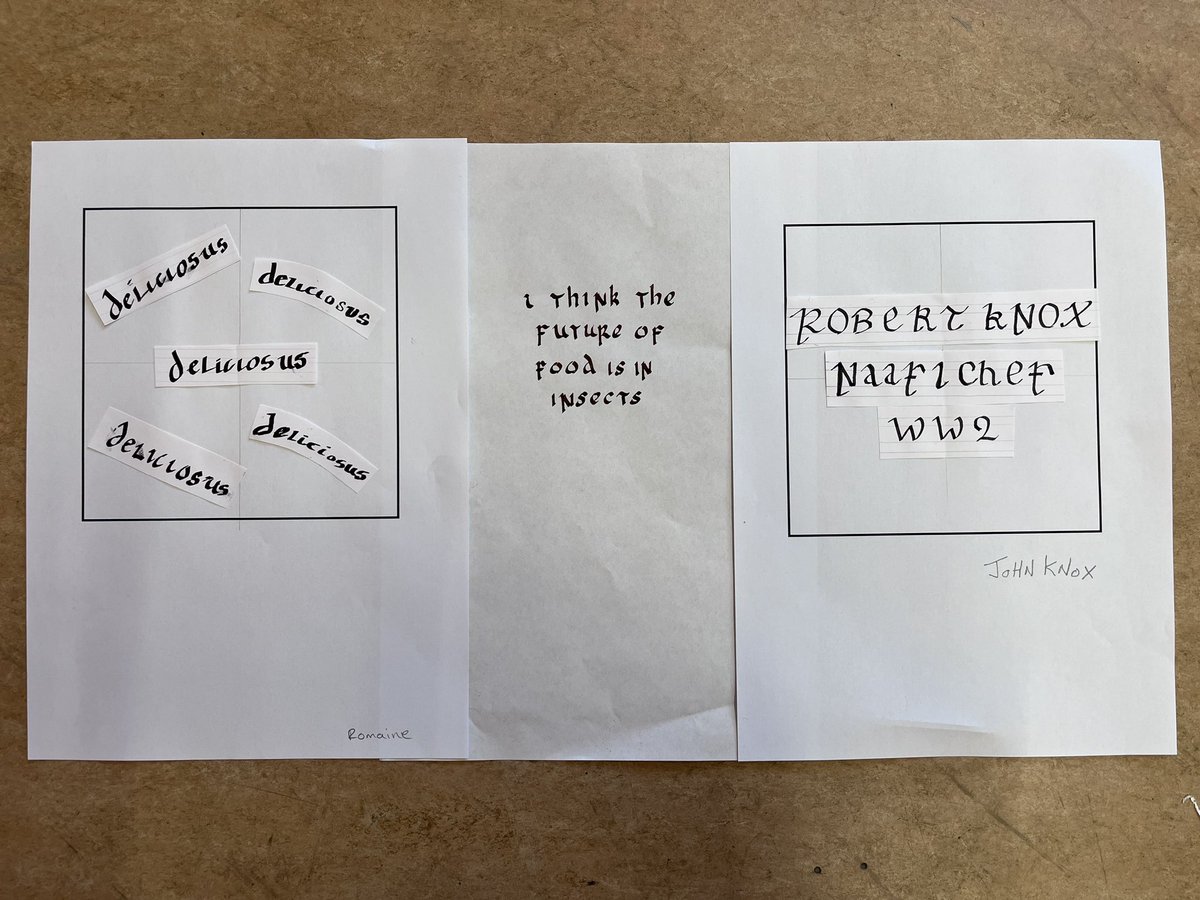 deliciosus
deliciosus
deliciosus
deliciosus
deliciosus
Romaine
I think the
future of
food is in
insects
ROBERT KNOX
Naafi Chef
WW2
JOHN KNOX